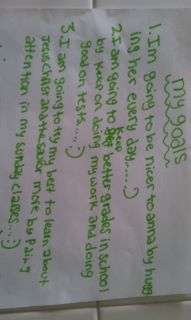 my goals
1. I'm going to be nicer to anna by hugg
ing her every day.....:)
2. I am going to keep better grades in school
by keep on doing my work and doing
good on tests....:)
3. I am going to try my best to learn about
Jesus Christ and the savior more by Paing
attention in my sunday classes...:)